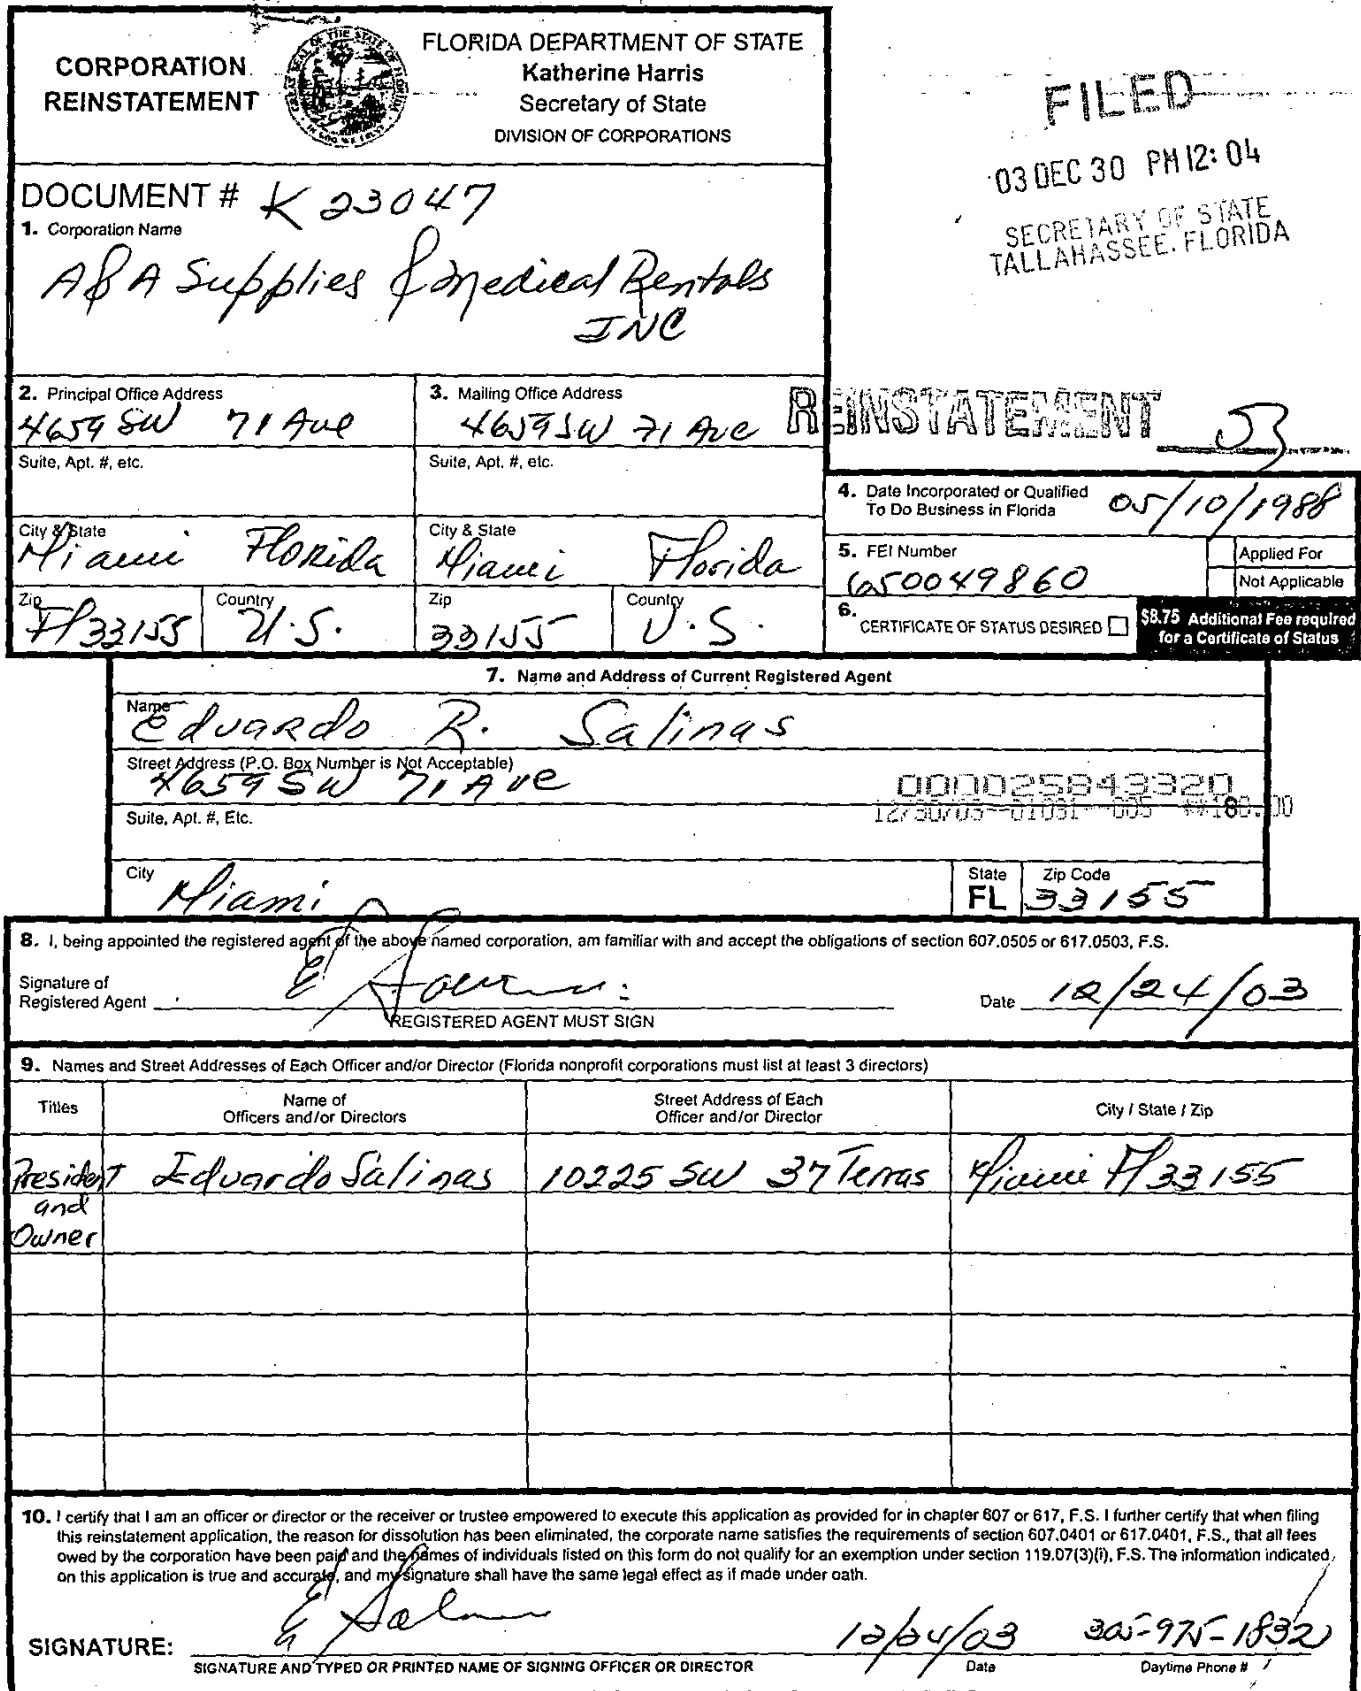 CORPORATION
REINSTATEMENT
FLORIDA DEPARTMENT OF STATE
Katherine Harris
Secretary of State
DIVISION OF CORPORATIONS
FILED
03 DEC 30 PM 12:04
SECRETARY OF STATE
TALLAHASSEE, FLORIDA
DOCUMENT # K 23047
1. Corporation Name
A & A Supplies & Medical Rentals
INC
2. Principal Office Address
4659 SW 71 Ave
3. Mailing Office Address
4659 SW 71 Ave
REINSTATEMENT 03
Suite, Apt. #, etc.
Suite, Apt. #, etc.
City & State
Miami Florida
City & State
Miami Florida
Zip
Fl 33155
Country
U.S.
Zip
33155
Country
U.S.
4. Date Incorporated or Qualified
To Do Business in Florida 05/10/1988
5. FEI Number
650049860
Applied For
Not Applicable
6. CERTIFICATE OF STATUS DESIRED
$8.75 Additional Fee required
for a Certificate of Status
7. Name and Address of Current Registered Agent
Name
Eduardo R. Salinas
Street Address (P.O. Box Number is Not Acceptable)
4659 SW 71 Ave
000025843320
12/30/03--01031--005 **180.00
Suite, Apt. #, Etc.
City
Miami
State
FL
Zip Code
33155
8. I, being appointed the registered agent of the above named corporation, am familiar with and accept the obligations of section 607.0505 or 617.0503, F.S.
Signature of
Registered Agent
Date 12/24/03
REGISTERED AGENT MUST SIGN
9. Names and Street Addresses of Each Officer and/or Director (Florida nonprofit corporations must list at least 3 directors)
Titles
Name of
Officers and/or Directors
Street Address of Each
Officer and/or Director
City / State / Zip
President Eduardo Salinas 10225 SW 37 Terras Miami Fl 33155
and
Owner
10. I certify that I am an officer or director or the receiver or trustee empowered to execute this application as provided for in chapter 607 or 617, F.S. I further certify that when filing
this reinstatement application, the reason for dissolution has been eliminated, the corporate name satisfies the requirements of section 607.0401 or 617.0401, F.S., that all fees
owed by the corporation have been paid and the names of individuals listed on this form do not qualify for an exemption under section 119.07(3)(i), F.S. The information indicated
on this application is true and accurate, and my signature shall have the same legal effect as if made under oath.
SIGNATURE: 12/24/03 305-975-1832
SIGNATURE AND TYPED OR PRINTED NAME OF SIGNING OFFICER OR DIRECTOR
Date
Daytime Phone #